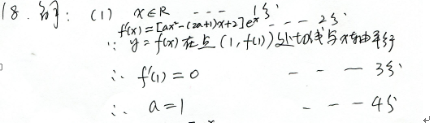 18. 解: (1) x∈R --- 1分
f'(x)=[ax²-(2a+1)x+2]eˣ --- 2分
∵ y=f(x)在点(1,f(1))处切线与x轴平行
∴ f'(1)=0 --- 3分
∴ a=1 --- 4分